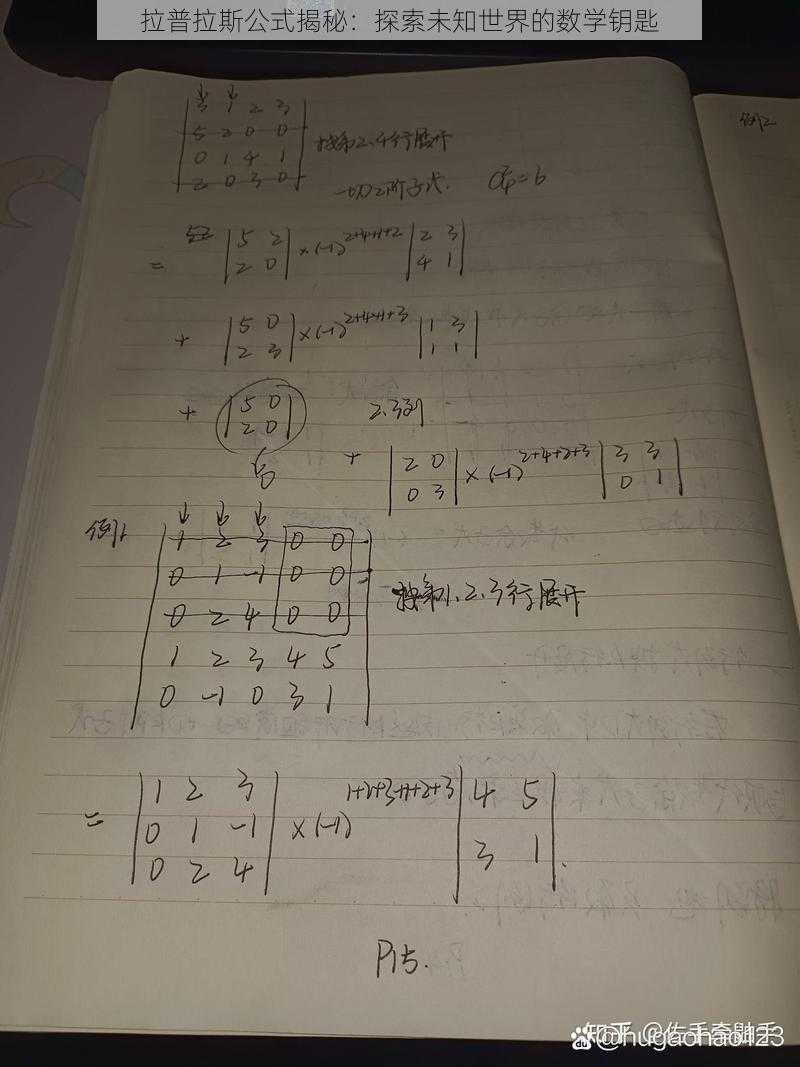 拉普拉斯公式揭秘：探索未知世界的数学钥匙
3 1 2 3
5 2 0 0
0 1 4 1
2 0 3 0
按第2.4行展开
一切2阶子式. C₄²=6
= |5 2; 2 0| × (-1)^{2+4+1+2} |2 3; 4 1|
+ |5 0; 2 3| × (-1)^{2+4+1+3} |1 3; 1 1|
+ |5 0; 2 0| 2.3列
0
+ |2 0; 0 3| × (-1)^{2+4+2+3} |3 3; 0 1|
例1
1 2 3 0 0
0 1 -1 0 0
0 2 4 0 0
1 2 3 4 5
0 -1 0 3 1
按第1.2.3行展开
= |1 2 3; 0 1 -1; 0 2 4| × (-1)^{1+2+3+1+2+3} |4 5; 3 1|.
P15.
例2
知乎
@hugaohao123